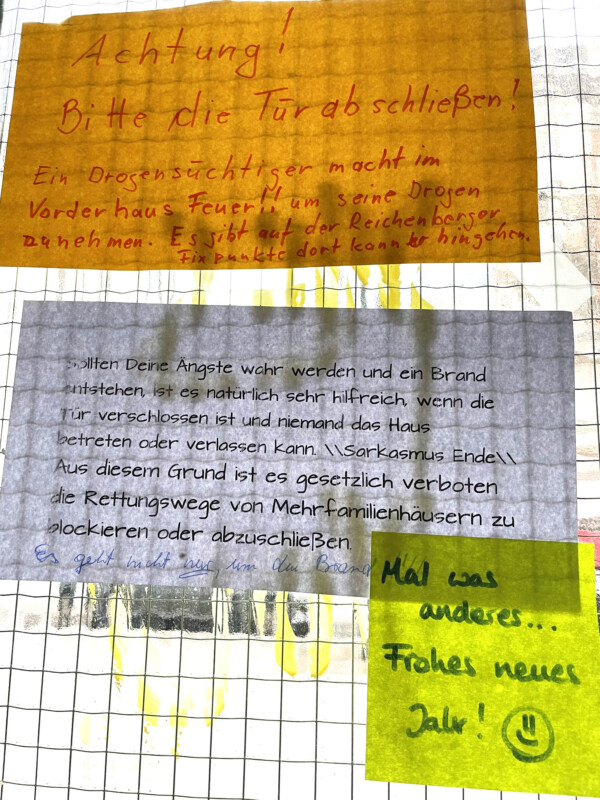 Achtung!
Bitte die Tür abschließen!
Ein Drogensüchtiger macht im
Vorderhaus Feuer!! um seine Drogen
zunehmen. Es gibt auf der Reichenberger
Fixpunkte dort kann er hingehen.
Sollten Deine Ängste wahr werden und ein Brand
entstehen, ist es natürlich sehr hilfreich, wenn die
Tür verschlossen ist und niemand das Haus
betreten oder verlassen kann. \\Sarkasmus Ende\\
Aus diesem Grund ist es gesetzlich verboten
die Rettungswege von Mehrfamilienhäusern zu
blockieren oder abzuschließen.
Es geht nicht nur, um den Brand
Mal was
anderes...
Frohes neues
Jahr!